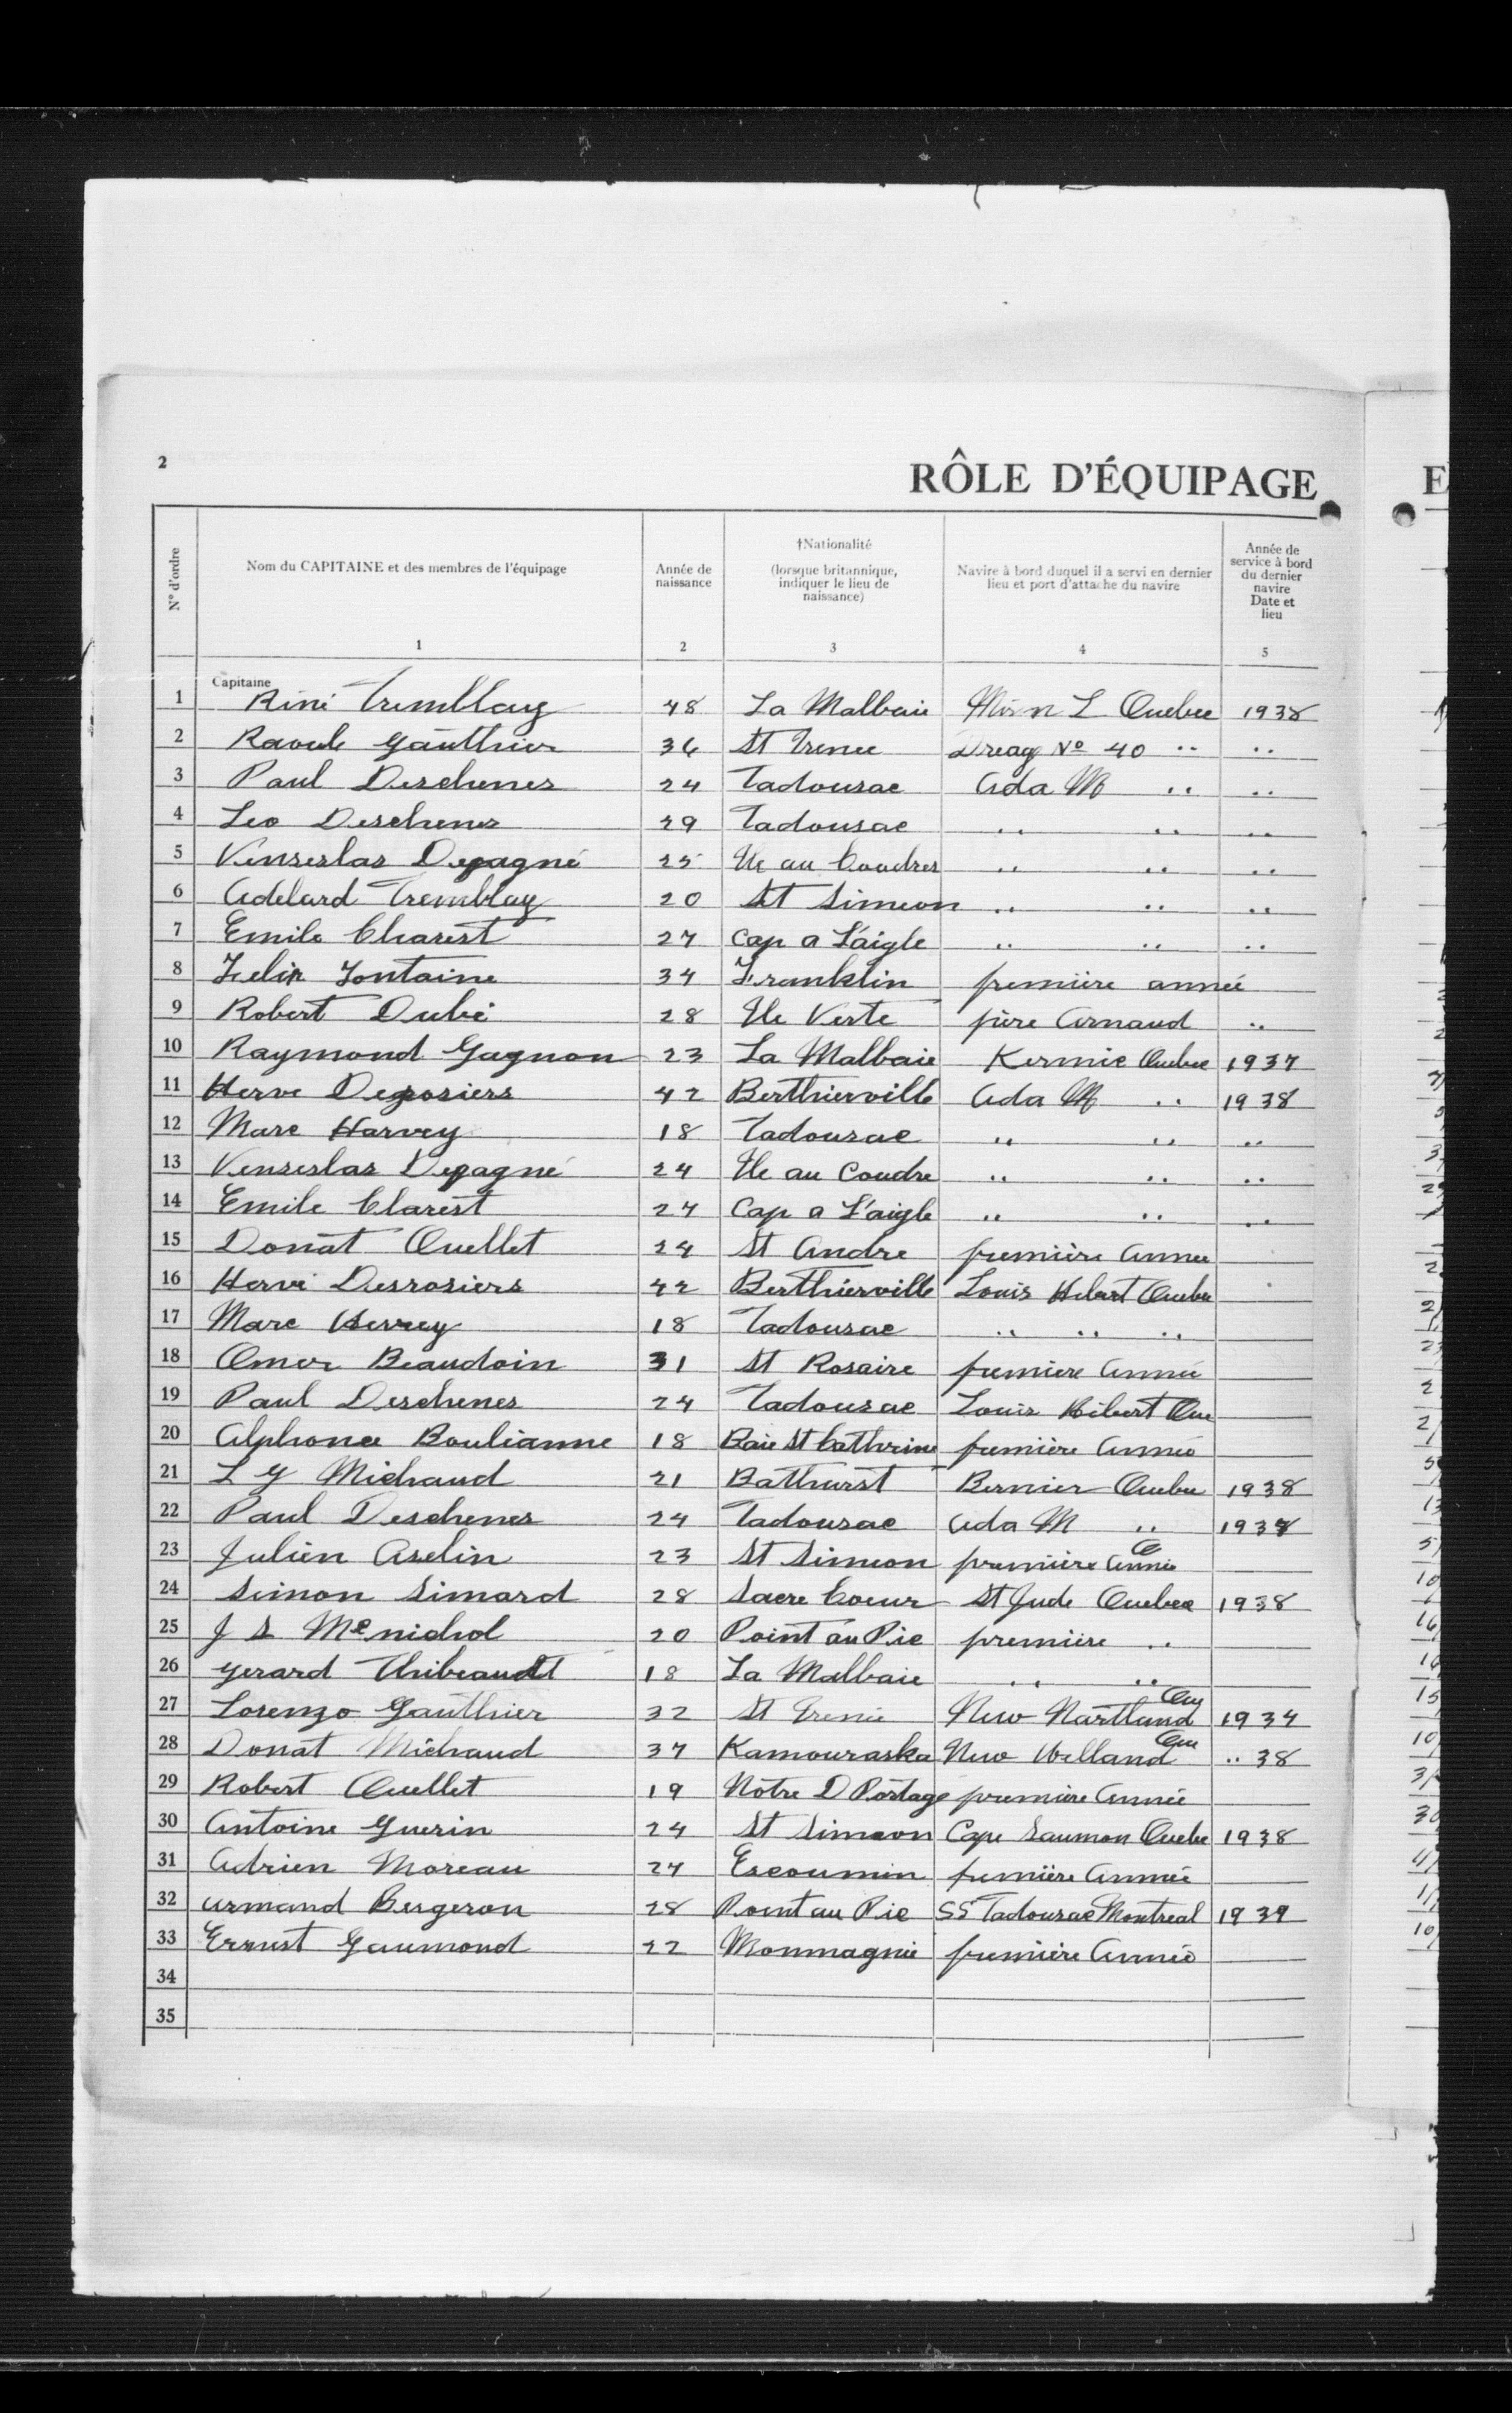 2
RÔLE D'ÉQUIPAGE
E
N° d'ordre
Nom du CAPITAINE et des membres de l'équipage
Année de naissance
†Nationalité (lorsque britannique, indiquer le lieu de naissance)
Navire à bord duquel il a servi en dernier lieu et port d'attache du navire
Année de service à bord du dernier navire Date et lieu
1 2 3 4 5
Capitaine
1 Réné Tremblay 48 La Malbaie L Quebec 1938
2 Raoule Gauthier 36 St Irenee No 40 .. ..
3 Paul Deschenes 24 Tadousac Ada M .. ..
4 Leo Deschenes 29 Tadousac .. .. ..
5 Venseslas Depagné 25 Ile au Coudres .. .. ..
6 Adelard Tremblay 20 St Simeon .. .. ..
7 Emile Charest 27 Cap a L'aigle .. .. ..
8 Felix Fontaine 34 Franklin première année
9 Robert Dubé 28 Ile Verte père Arnaud ..
10 Raymond Gagnon 23 La Malbaie Kermic Quebec 1937
11 Herve Desrosiers 42 Berthierville Ada M .. 1938
12 Marc Harvey 18 Tadousac .. .. ..
13 Venseslas Depagné 24 Ile au Coudre .. .. ..
14 Emile Clarest 27 Cap a L'aigle .. .. ..
15 Donat Ouellet 24 St Andre première Annee
16 Hervé Desrosiers 42 Berthierville Louis Hebert Quebec
17 Marc Hervey 18 Tadousac .. .. ..
18 Omer Beaudoin 31 St Rosaire première Année
19 Paul Deschenes 24 Tadousac Louis Hébert Que
20 Alphonce Boulianne 18 Baie St Cathrine première Année
21 L G Michaud 21 Bathurst Bernier Quebec 1938
22 Paul Deschenes 24 Tadousac Ada M .. 1938
23 Julien Aselin 23 St Simeon première Année
24 Simon Simard 28 Sacre Coeur St Jude Quebec 1938
25 J S Mcnichol 20 Point au Pic première ..
26 Gerard Thibeault 18 La Malbaie .. ..
27 Lorenzo Gauthier 32 St Irenée New Nartland Que 1934
28 Donat Michaud 37 Kamouraska New Welland Que .. 38
29 Robert Ouellet 19 Notre D Portage première Année
30 Antoine Guerin 24 St Simeon Cape Saumon Quebe 1938
31 Adrien Moreau 27 Escoumin première Année
32 Armand Bergeron 28 Point au Pic SS Tadousac Montreal 1939
33 Ernest Gaumond 22 Monmagnie première Année
34
35